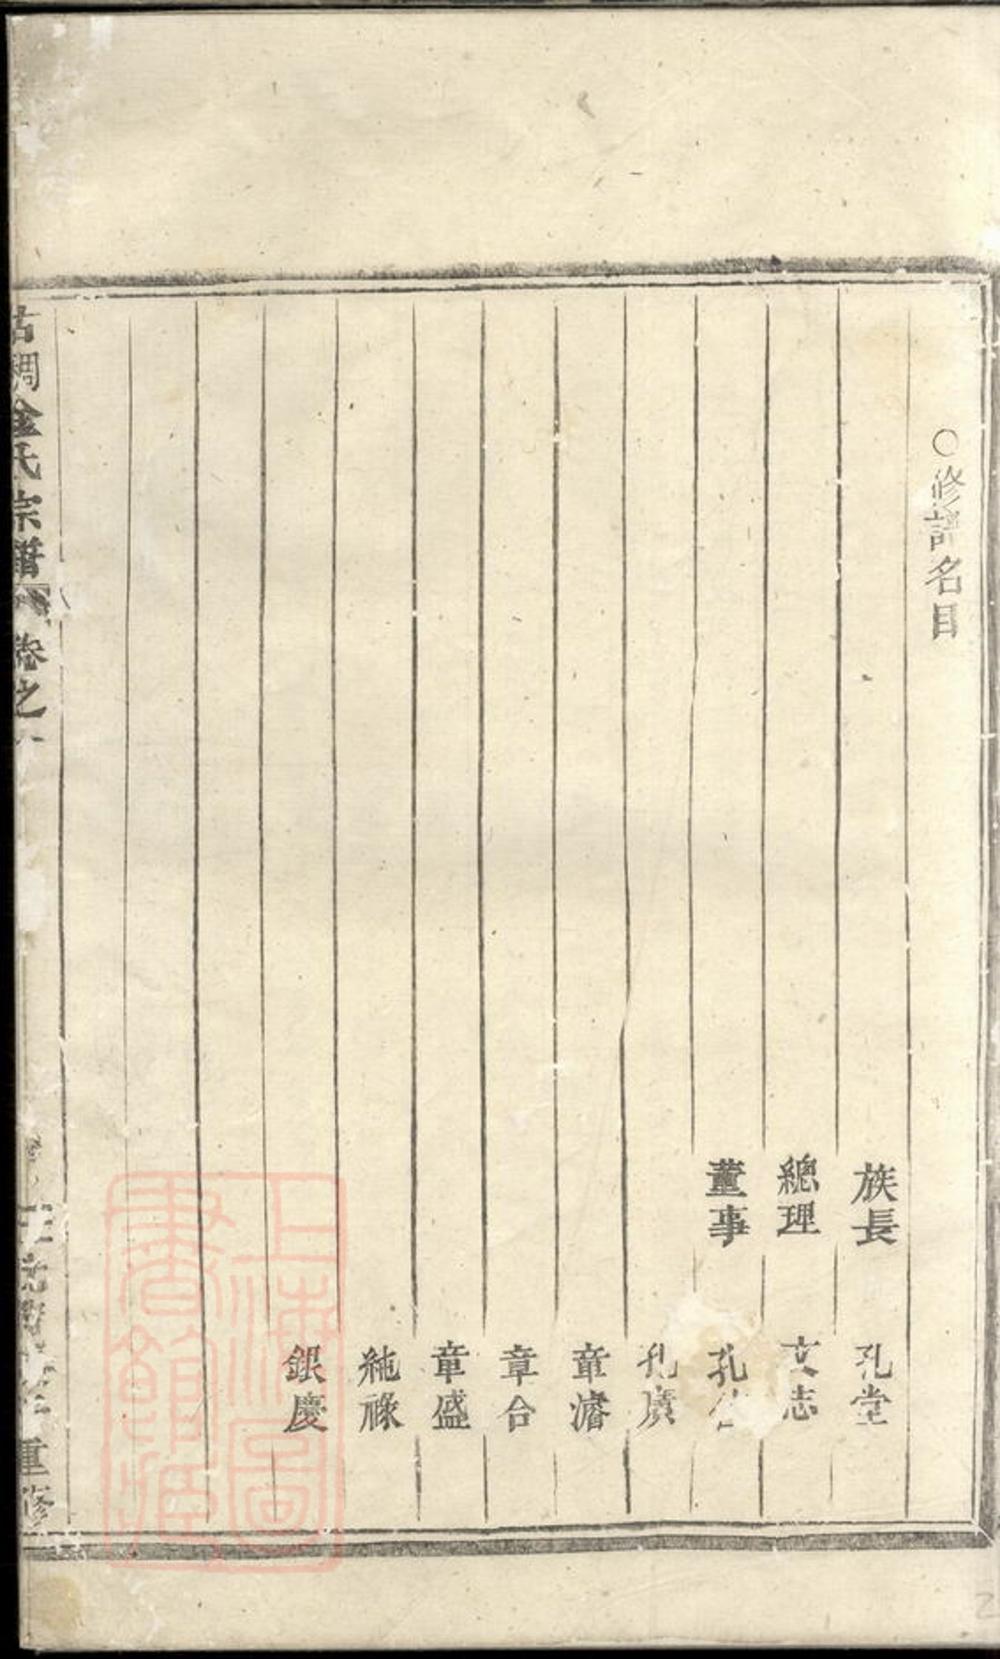 ○修譜名目
族長 孔堂
總理 文志
董事 孔
孔廣
章濬
章合
章盛
純祿
銀慶
古稠金氏宗譜 卷之
重修
上海圖書館藏